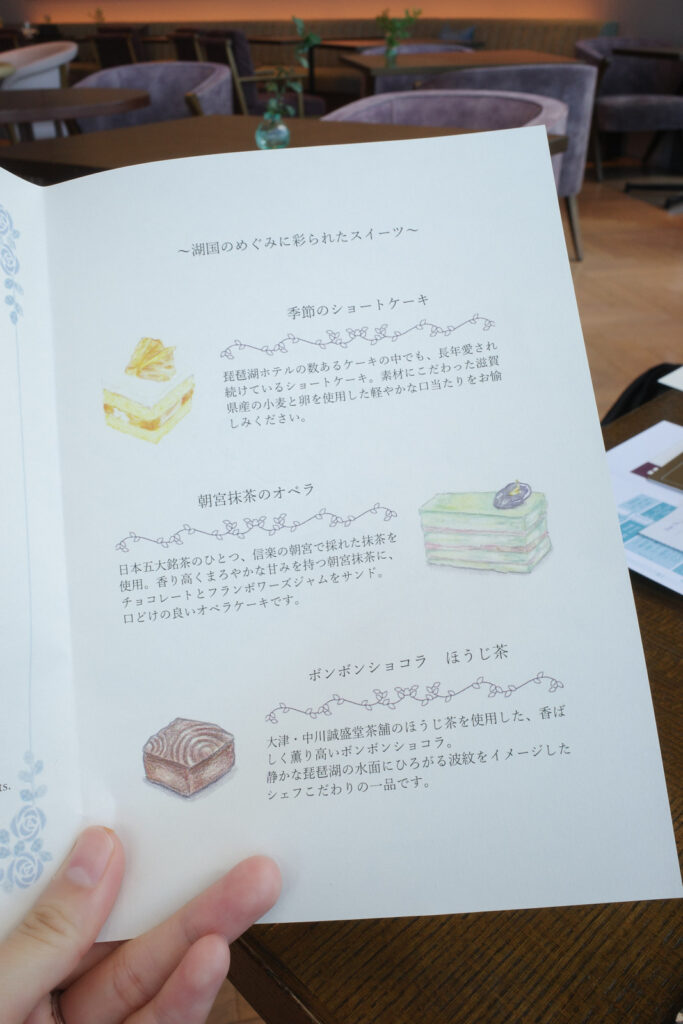 ～湖国のめぐみに彩られたスイーツ～
季節のショートケーキ
琵琶湖ホテルの数あるケーキの中でも、長年愛され
続けているショートケーキ。素材にこだわった滋賀
県産の小麦と卵を使用した軽やかな口当たりをお愉
しみください。
朝宮抹茶のオペラ
日本五大銘茶のひとつ、信楽の朝宮で採れた抹茶を
使用。香り高くまろやかな甘みを持つ朝宮抹茶に、
チョコレートとフランボワーズジャムをサンド。
口どけの良いオペラケーキです。
ボンボンショコラ　ほうじ茶
大津・中川誠盛堂茶舗のほうじ茶を使用した、香ば
しく薫り高いボンボンショコラ。
静かな琵琶湖の水面にひろがる波紋をイメージした
シェフこだわりの一品です。